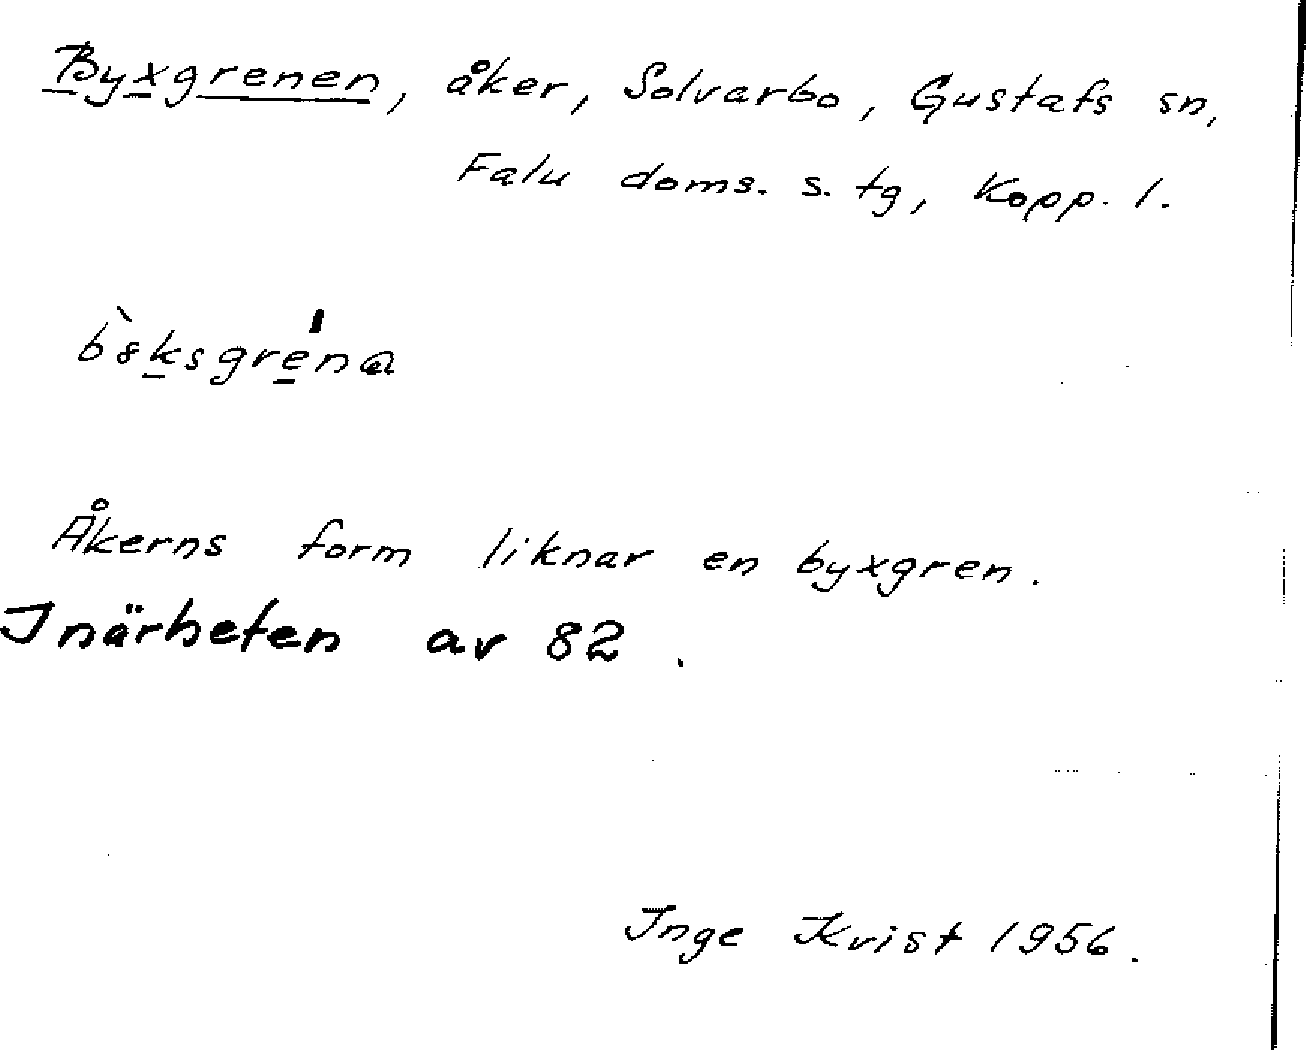 Byxgrenen, åker, Solvarbo, Gustafs sn,
Falu doms. s. tg, Kopp. l.
Åkerns form liknar en byxgren.
I närheten av 82.
Inge Kvist 1956.